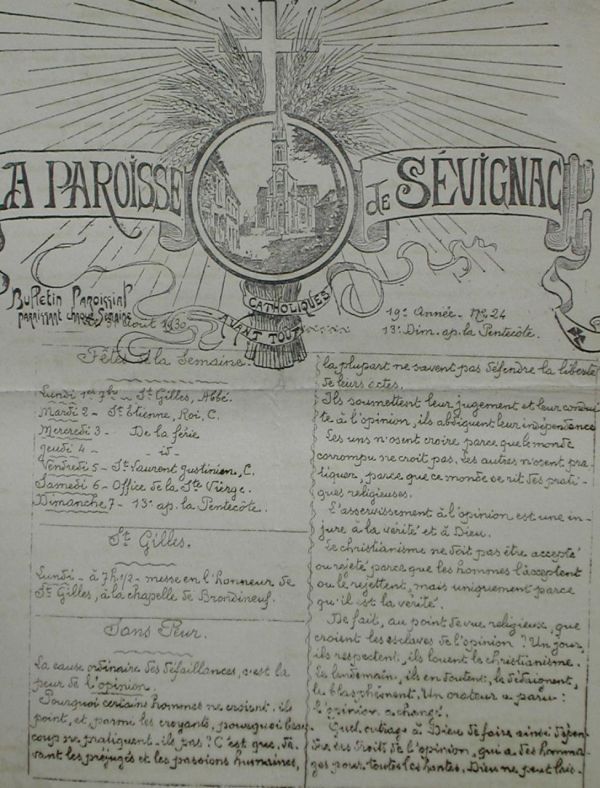 LA PAROISSE de SÉVIGNAC
CATHOLIQUES
AVANT TOUT
Bulletin Paroissial
paraissant chaque Semaine
Août 1930
19e Année - No 24
13e Dim. ap. la Pentecôte.
Fêtes de la Semaine.
Lundi 1er 7bre - St Gilles, Abbé.
Mardi 2 - St Etienne, Roi, C.
Mercredi 3 - De la férie
Jeudi 4 - - id -
Vendredi 5 - St Laurent Justinien, C.
Samedi 6 - Office de la Ste Vierge.
Dimanche 7 - 13e ap. la Pentecôte.
St Gilles.
Lundi - à 7h.1/2 - messe en l'honneur de
St Gilles, à la chapelle de Brondineuf.
Sans Peur.
La cause ordinaire des défaillances, c'est la
peur de l'opinion.
Pourquoi certains hommes ne croient-ils
point, et, parmi les croyants, pourquoi beau-
coup ne pratiquent-ils pas? C'est que, de-
vant les préjugés et les passions humaines,
la plupart ne savent pas défendre la liberté
de leurs actes.
Ils soumettent leur jugement et leur condui-
te à l'opinion, ils abdiquent leur indépendance
Les uns n'osent croire parce que le monde
corrompu ne croit pas. Les autres n'osent pra-
tiquer, parce que ce monde se rit des prati-
ques religieuses.
L'asservissement à l'opinion est une in-
jure à la vérité et à Dieu.
Le christianisme ne doit pas être accepté
ou rejeté parce que les hommes l'acceptent
ou le rejettent, mais uniquement parce
qu'il est la vérité.
De fait, au point de vue religieux, que
croient les esclaves de l'opinion? Un jour,
ils respectent, ils louent le christianisme.
Le lendemain, ils en doutent, le dédaignent,
le blasphèment. Un orateur a paru:
l'opinion a changé.
Quel outrage à Dieu de faire ainsi dépen-
dre ses droits de l'opinion, qui a des homma-
ges pour toutes les hontes. Dieu ne peut lais-